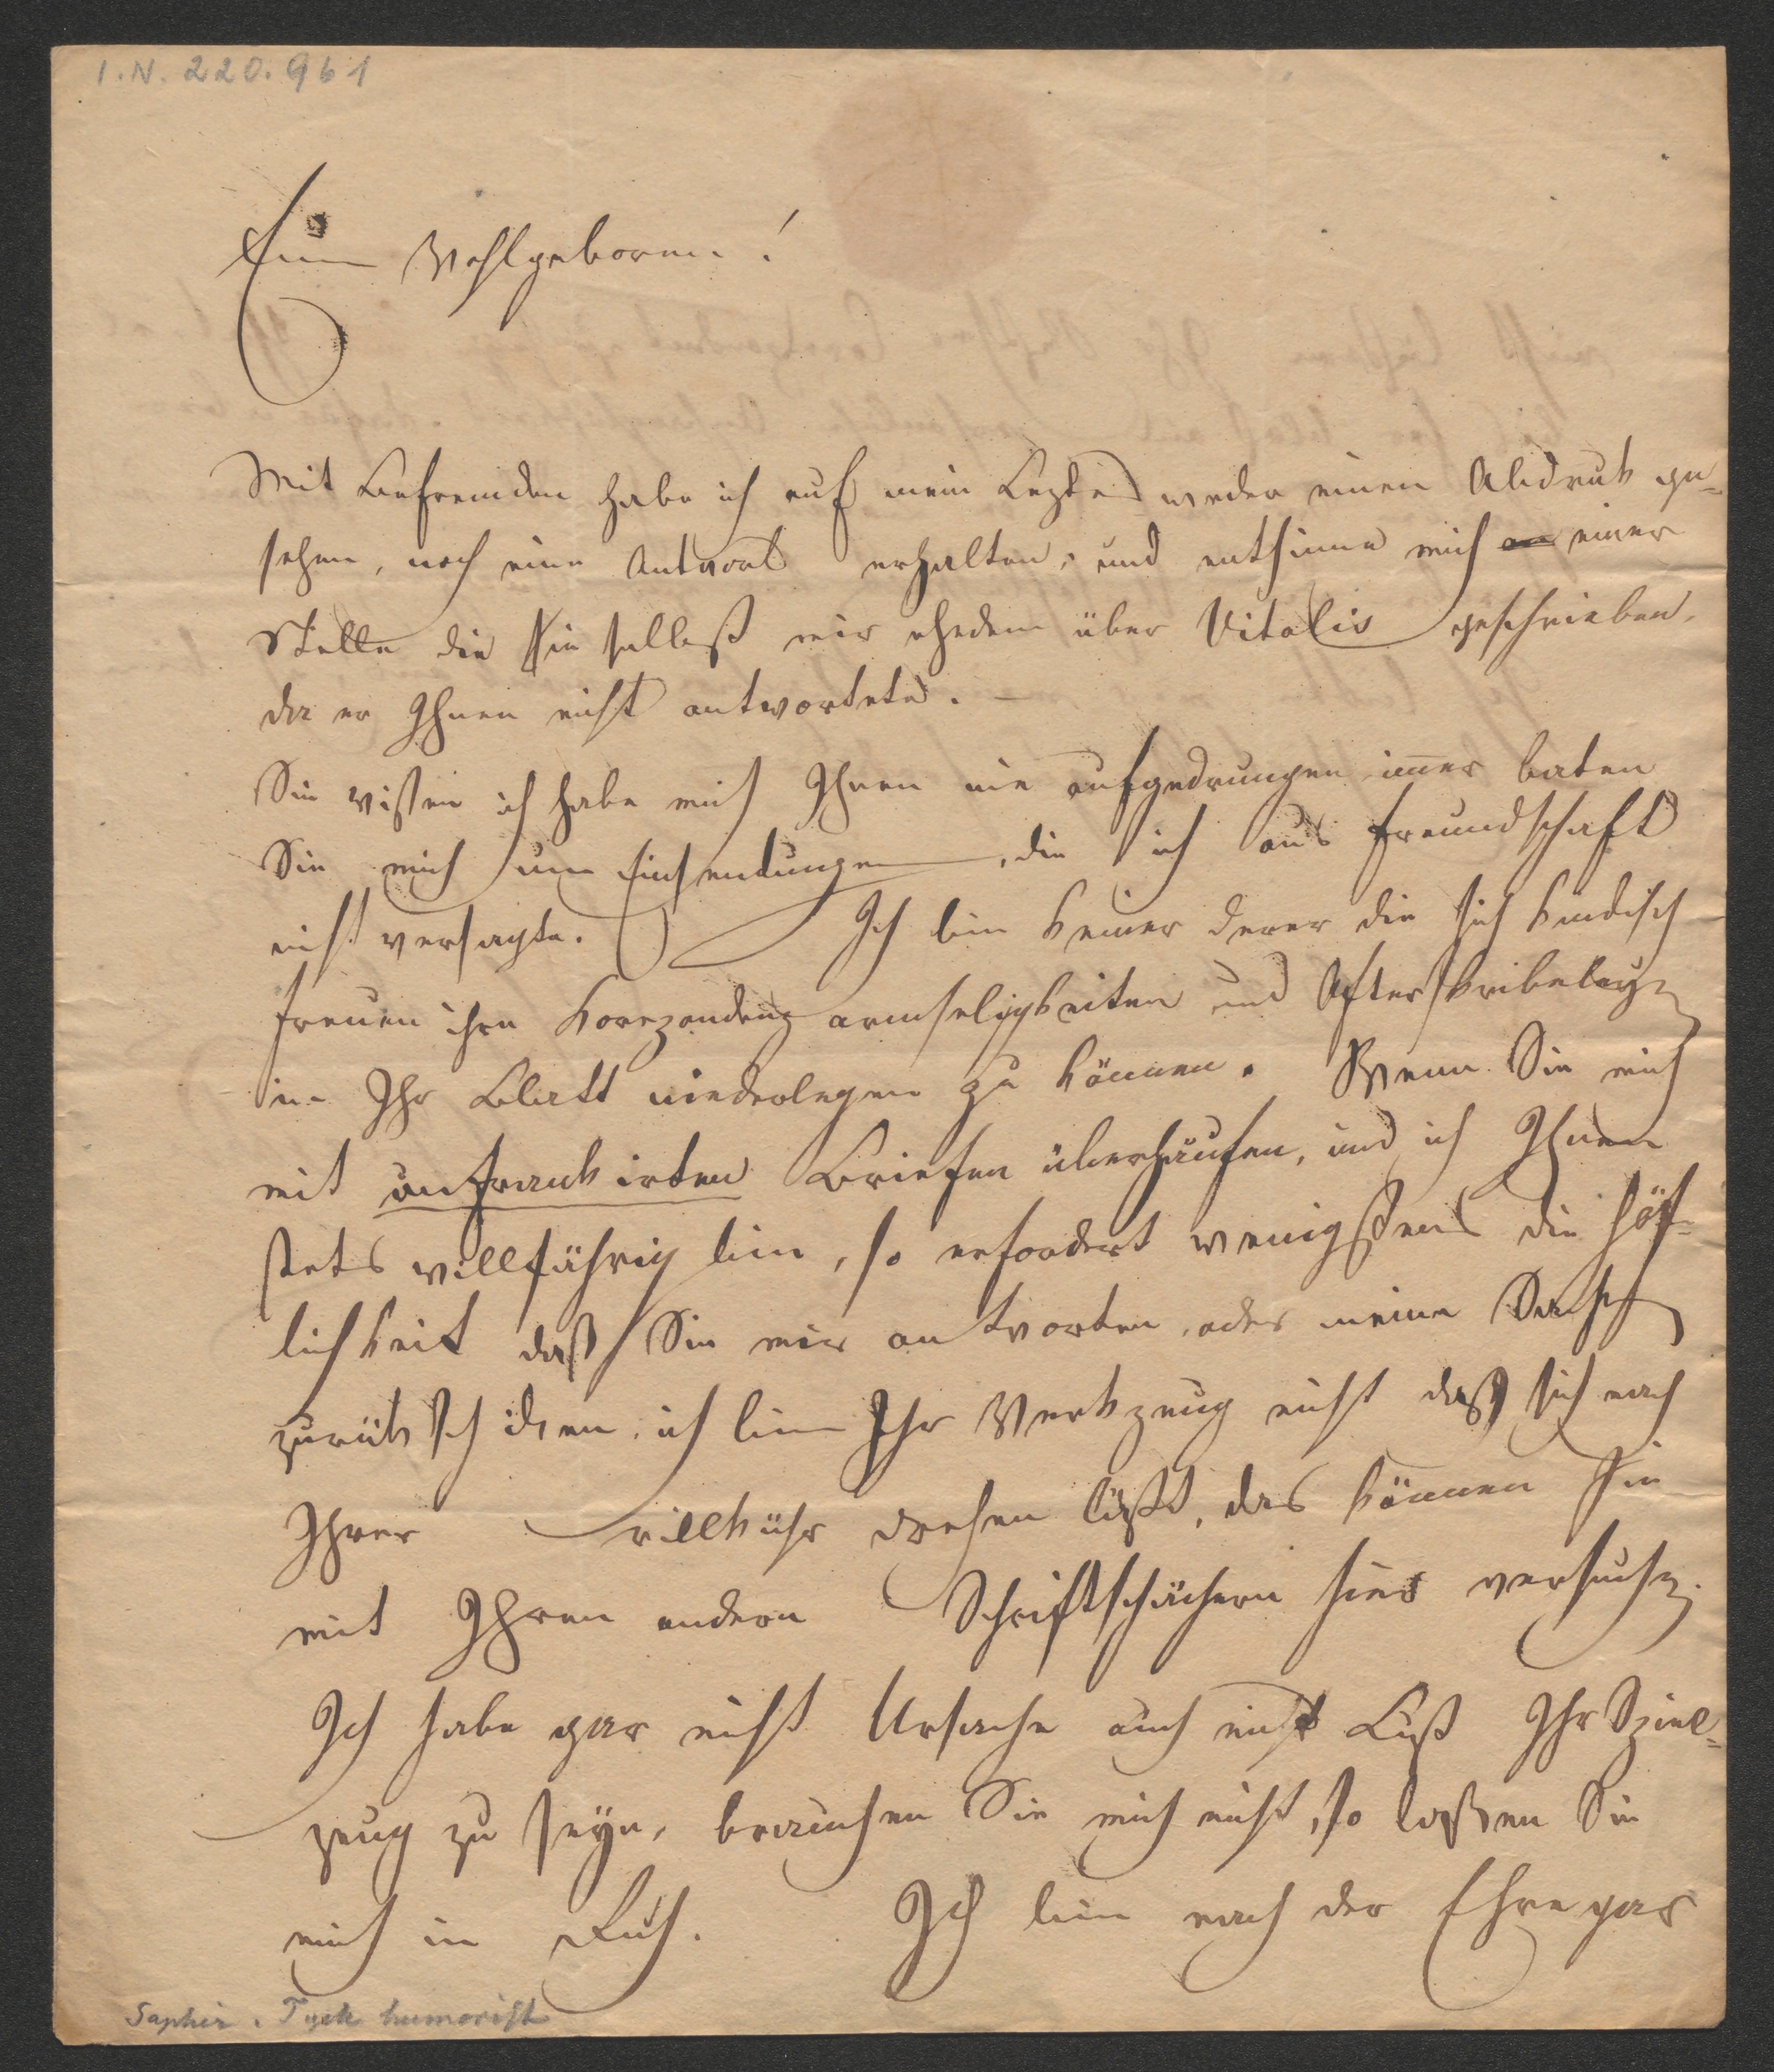 I.N. 220.961
Euer Wohlgeboren!
Mit Befremden habe ich auf mein Leztes weder einen Abdruk ge-
sehen, noch eine Antwort erhalten, und entsinne mich einer
Stelle die Sie selbst mir ehedem über Vitalis geschrieben,
da er Ihnen nicht antwortete. –
Sie wißen ich habe mich Ihnen nie aufgedrungen im̅er baten
Sie mich um Einsendungen, die ich aus Freundschaft
nicht versagte. Ich bin keiner derer die sich kindisch
freuen ihre armseligkeiten und Afterskribeleyen
in Ihr Blatt niederlegen zu können. Wenn Sie mich
mit unfrankirten Briefen überhäufen, und ich Ihnen
stets willfährig bin, so erfordert wenigstens die Höf-
lichkeit daß Sie mir antworten, oder meine Sachen
zurükschiken, ich bin Ihr Werkzeug nicht daß sich nach
Ihrer Willkühr drehen läßt, das können Sie
mit Ihren andern Schriftschächern hier versuchen.
Ich habe gar nicht Ursache auch nicht Lust Ihr Spiel-
zeug zu seyn, brauchen Sie mich nicht, so laßen Sie
mich in Ruh. Ich bin nach der Ehre gar
Saphir. humorist